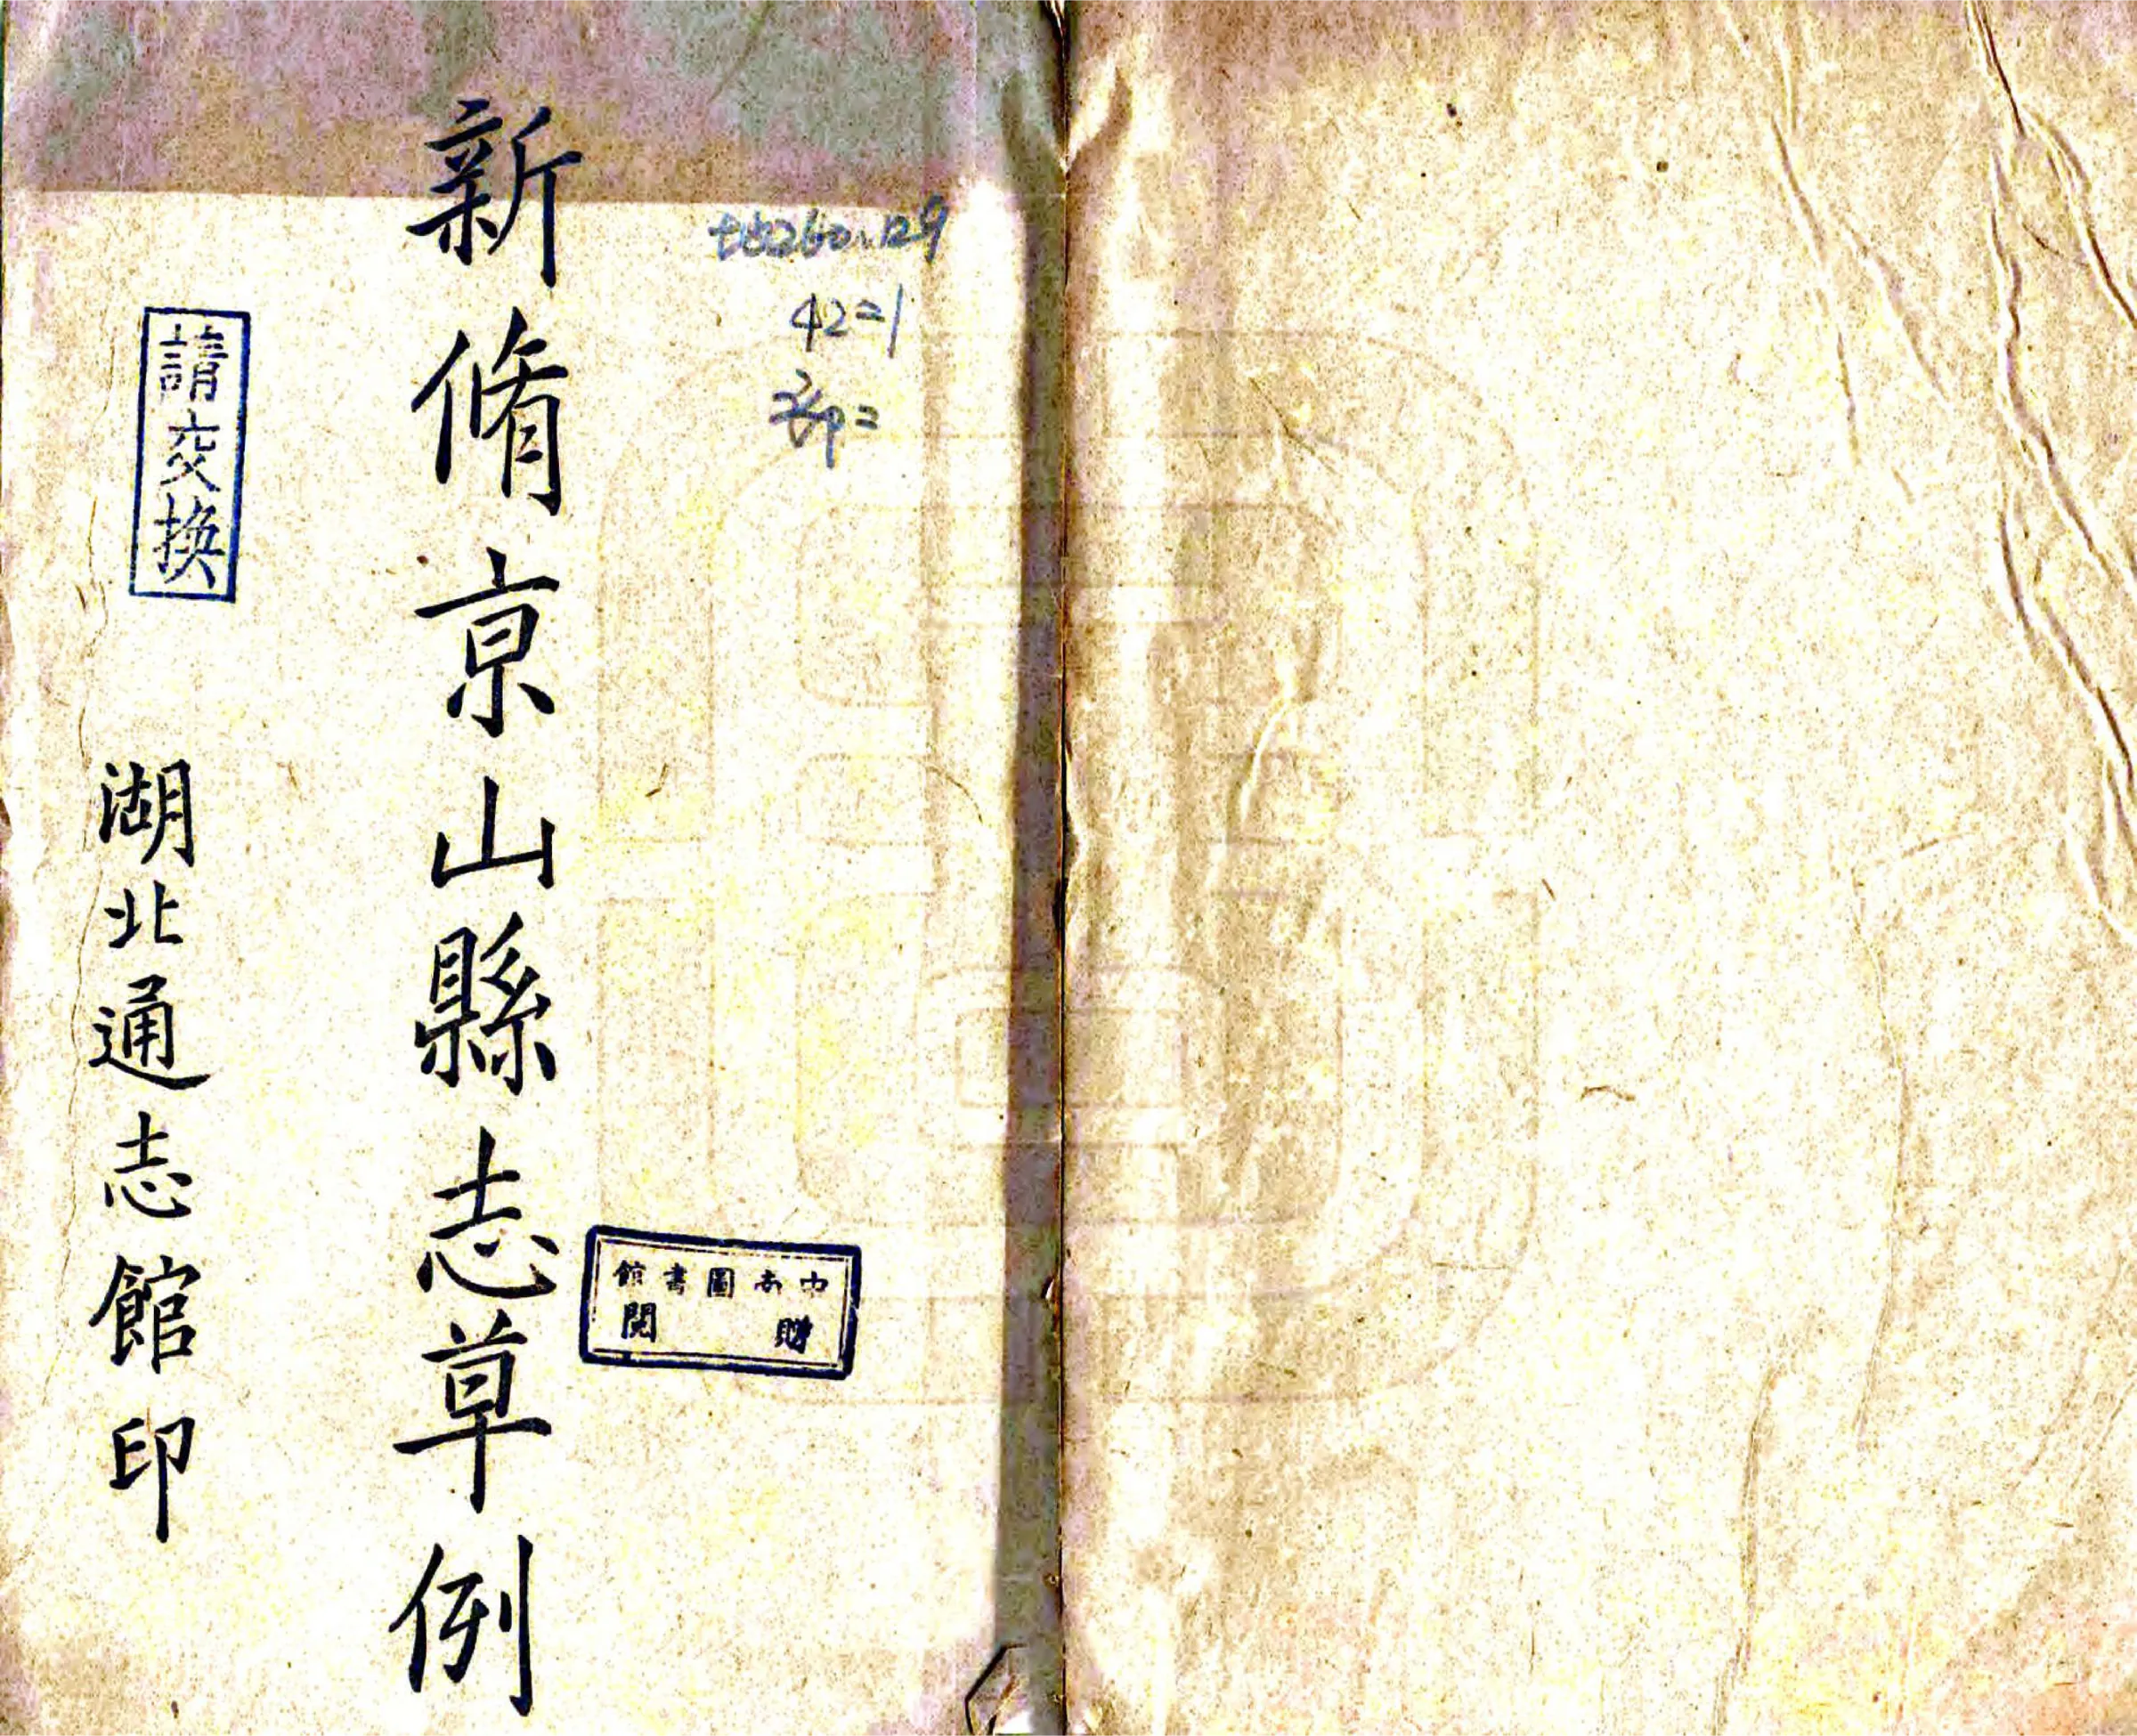 地260.129
42=1
新脩京山縣志草例
請交換
湖北通志館印
中南圖書館
贈閱